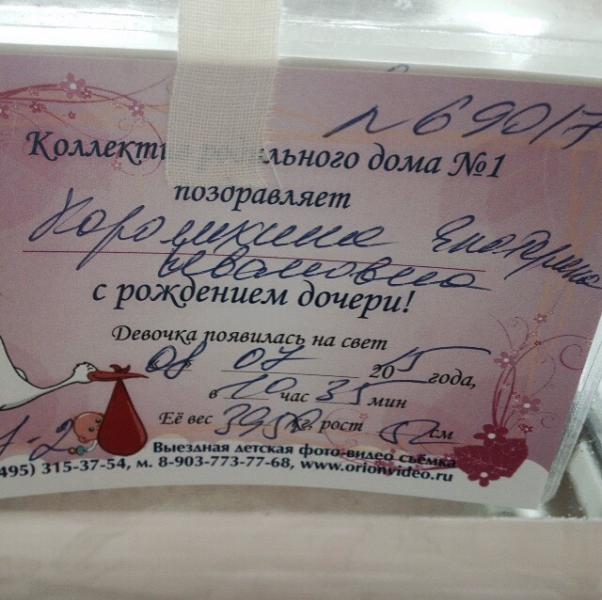 № 690/7
Коллектив родильного дома №1
позоравляет
Екатерина
Ивановна
с рождением дочери!
Девочка появилась на свет
08 07 2015 года,
в 10 час 35 мин
Её вес 3950 кг, рост 52 см
Выездная детская фото-видео съёмка
495) 315-37-54, м. 8-903-773-77-68, www.orionvideo.ru